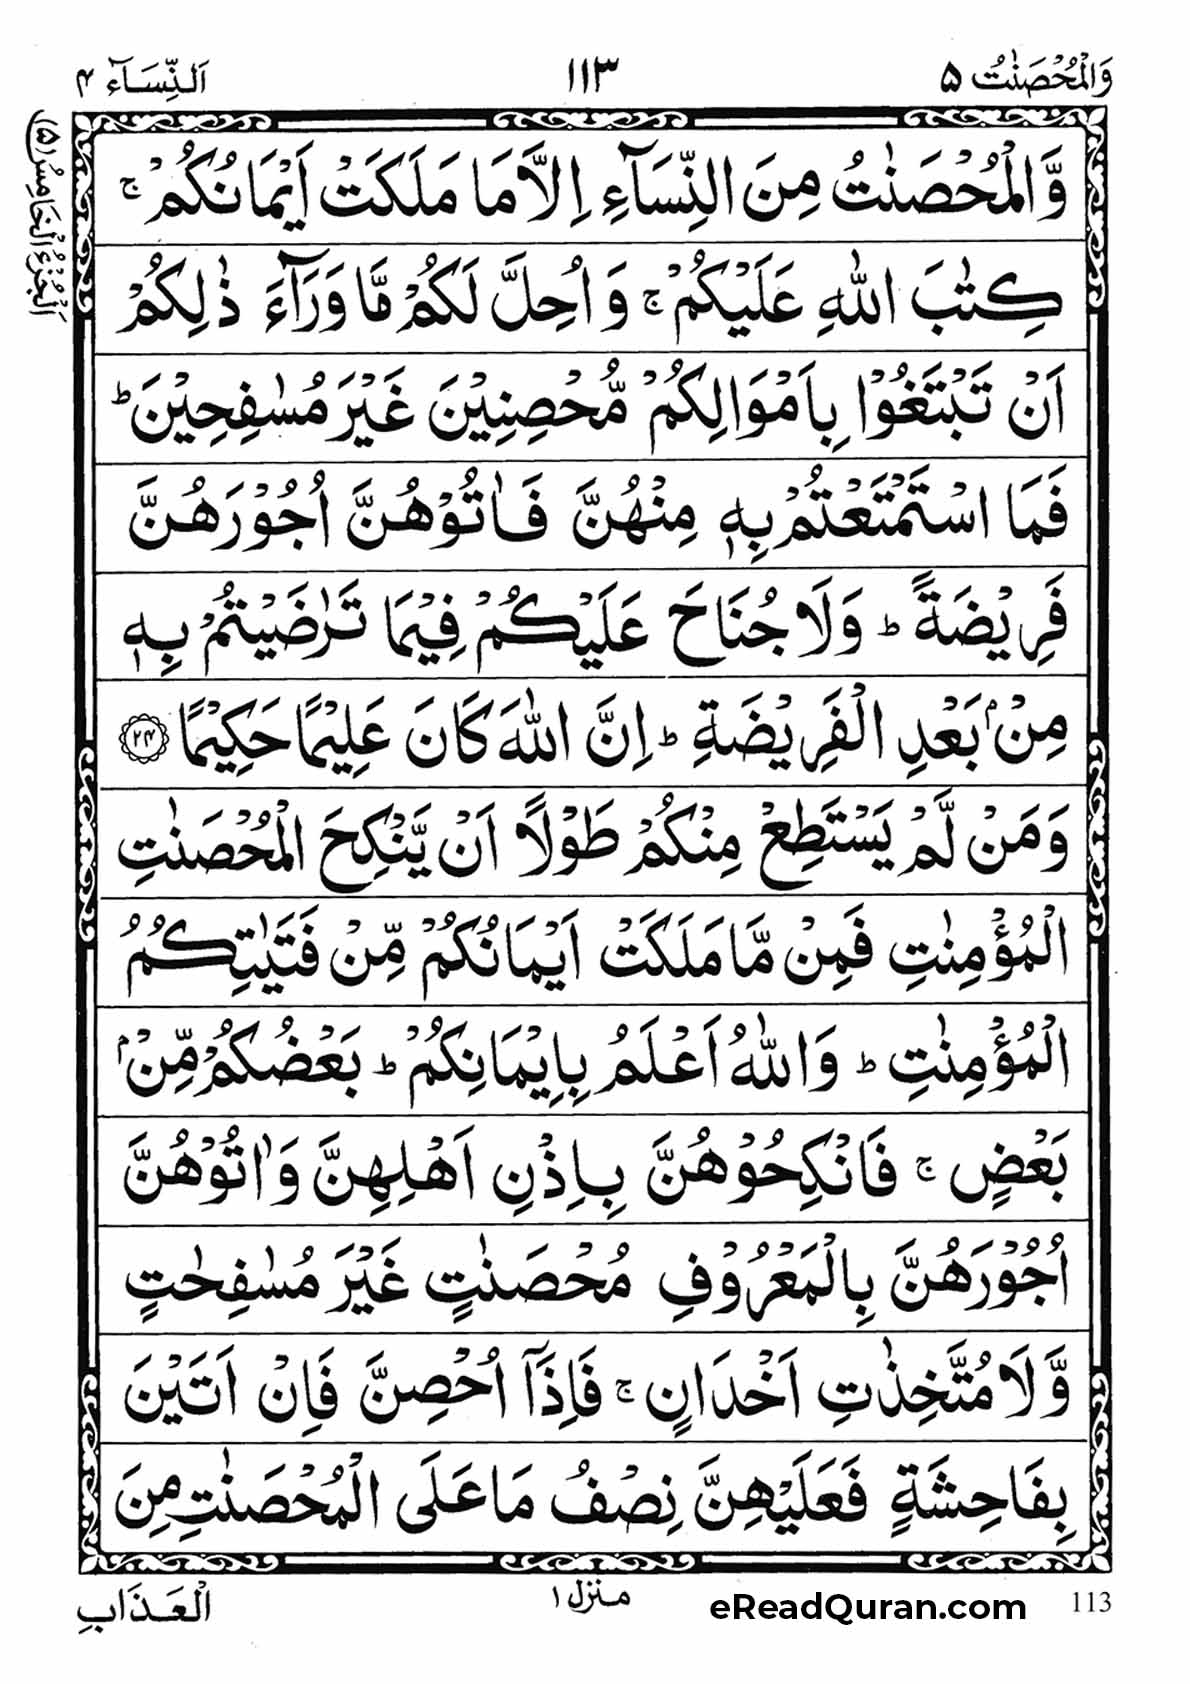 وَالْمُحْصَنٰتُ ۵
۱۱۳
اَلنِّسَآء ۴
اَلْجُزْءُ الْخَامِسُ (۵)
وَّالْمُحْصَنٰتُ مِنَ النِّسَآءِ اِلَّا مَا مَلَكَتْ اَيْمَانُكُمْ ۚ
كِتٰبَ اللّٰهِ عَلَيْكُمْ ۚ وَ اُحِلَّ لَكُمْ مَّا وَرَآءَ ذٰلِكُمْ
اَنْ تَبْتَغُوْا بِاَمْوَالِكُمْ مُّحْصِنِيْنَ غَيْرَ مُسٰفِحِيْنَ ؕ
فَمَا اسْتَمْتَعْتُمْ بِهٖ مِنْهُنَّ فَاٰتُوْهُنَّ اُجُوْرَهُنَّ
فَرِيْضَةً ؕ وَلَا جُنَاحَ عَلَيْكُمْ فِيْمَا تَرٰضَيْتُمْ بِهٖ
مِنْۢ بَعْدِ الْفَرِيْضَةِ ؕ اِنَّ اللّٰهَ كَانَ عَلِيْمًا حَكِيْمًا ۲۴
وَمَنْ لَّمْ يَسْتَطِعْ مِنْكُمْ طَوْلًا اَنْ يَّنْكِحَ الْمُحْصَنٰتِ
الْمُؤْمِنٰتِ فَمِنْ مَّا مَلَكَتْ اَيْمَانُكُمْ مِّنْ فَتَيٰتِكُمُ
الْمُؤْمِنٰتِ ؕ وَاللّٰهُ اَعْلَمُ بِاِيْمَانِكُمْ ؕ بَعْضُكُمْ مِّنْۢ
بَعْضٍ ۚ فَانْكِحُوْهُنَّ بِاِذْنِ اَهْلِهِنَّ وَاٰتُوْهُنَّ
اُجُوْرَهُنَّ بِالْمَعْرُوْفِ مُحْصَنٰتٍ غَيْرَ مُسٰفِحٰتٍ
وَّلَا مُتَّخِذٰتِ اَخْدَانٍ ۚ فَاِذَآ اُحْصِنَّ فَاِنْ اَتَيْنَ
بِفَاحِشَةٍ فَعَلَيْهِنَّ نِصْفُ مَا عَلَى الْمُحْصَنٰتِ مِنَ
الْعَذَابِ
منزل ۱
eReadQuran.com
113